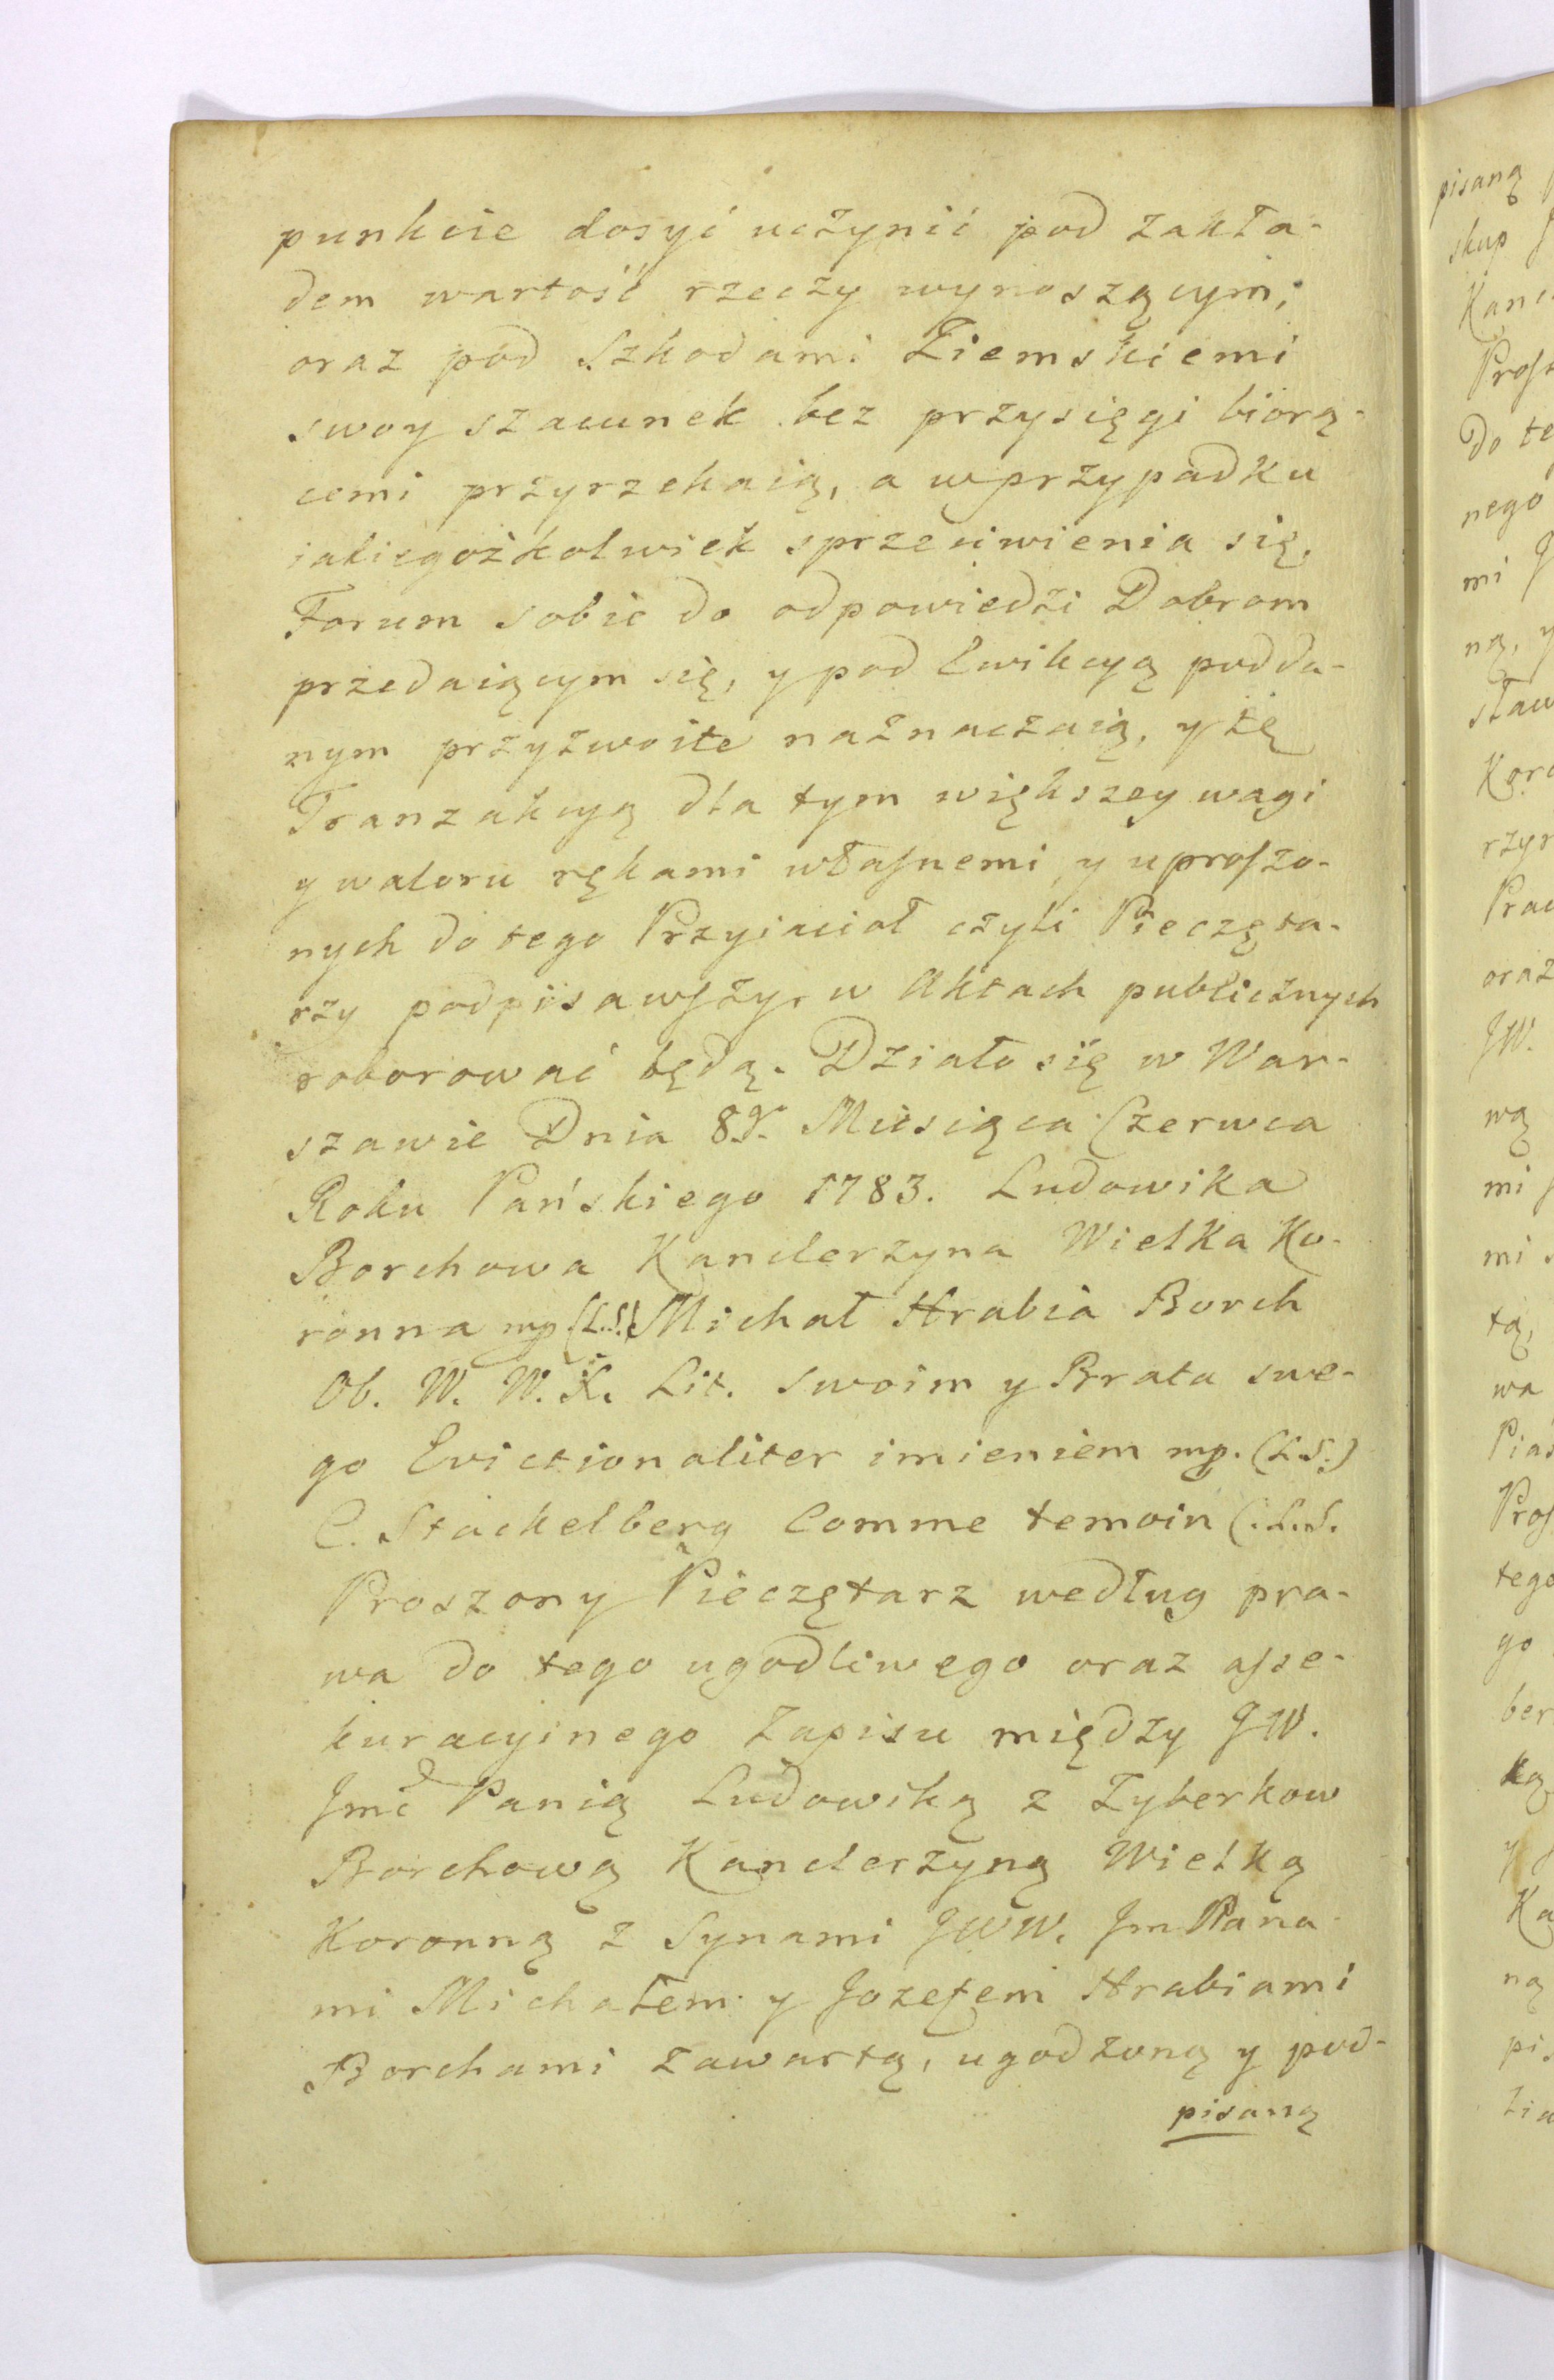 punkcie dosyć uczynić pod zakła-
dem wartość rzeczy wynoszącym,
oraz pod Szkodami Ziemskiemi
swoy szacunek bez przysięgi biorą-
cemi przyrzekaią, a w przypadku
iakiegożkolwiek sprzeciwienia się,
Forum sobie do odpowiedzi Dobrom
przedaiącym się, y pod Ewikcyą podda-
nym przyzwoite naznaczaią, y tę
Tranzakcyą dla tym większey wagi
y waloru rękami właſnemi y uproſzo-
nych do tego Przyiacioł czyli Pieczęta-
rzy podpisawſzy, w Aktach publicznych
roborować będą. Działo się w War-
szawie Dnia 8g. Miesiąca Czerwca
Roku Pańskiego 1783. Ludowika
Borchowa Kanclerzyna Wielka Ko-
ronna mp (L.S.) Michał Hrabia Borch
Ob. W. W. X. Lit. swoim y Brata swe-
go Evictionaliter imieniem mp. (L.S.)
C. Stackelberg Comme temoin (:L.S.
Proszony Pieczętarz według pra-
wa do tego ugodliwego oraz aſse-
kuracyinego Zapisu między JW.
Jmć Panią Ludowiką z Zyberkow
Borchową Kanclerzyną Wielką
Koronną z Synami JWW. Jm Pana-
mi Michałem y Jozefem Hrabiami
Borchami zawartą, ugodzoną y pod-
pisaną
pisaną
skup
Do te
nego
mi J
ną, y
sław
oraz
JW.
wą
mi
mi
tą,
wa
tego
go
ber
ką
ną